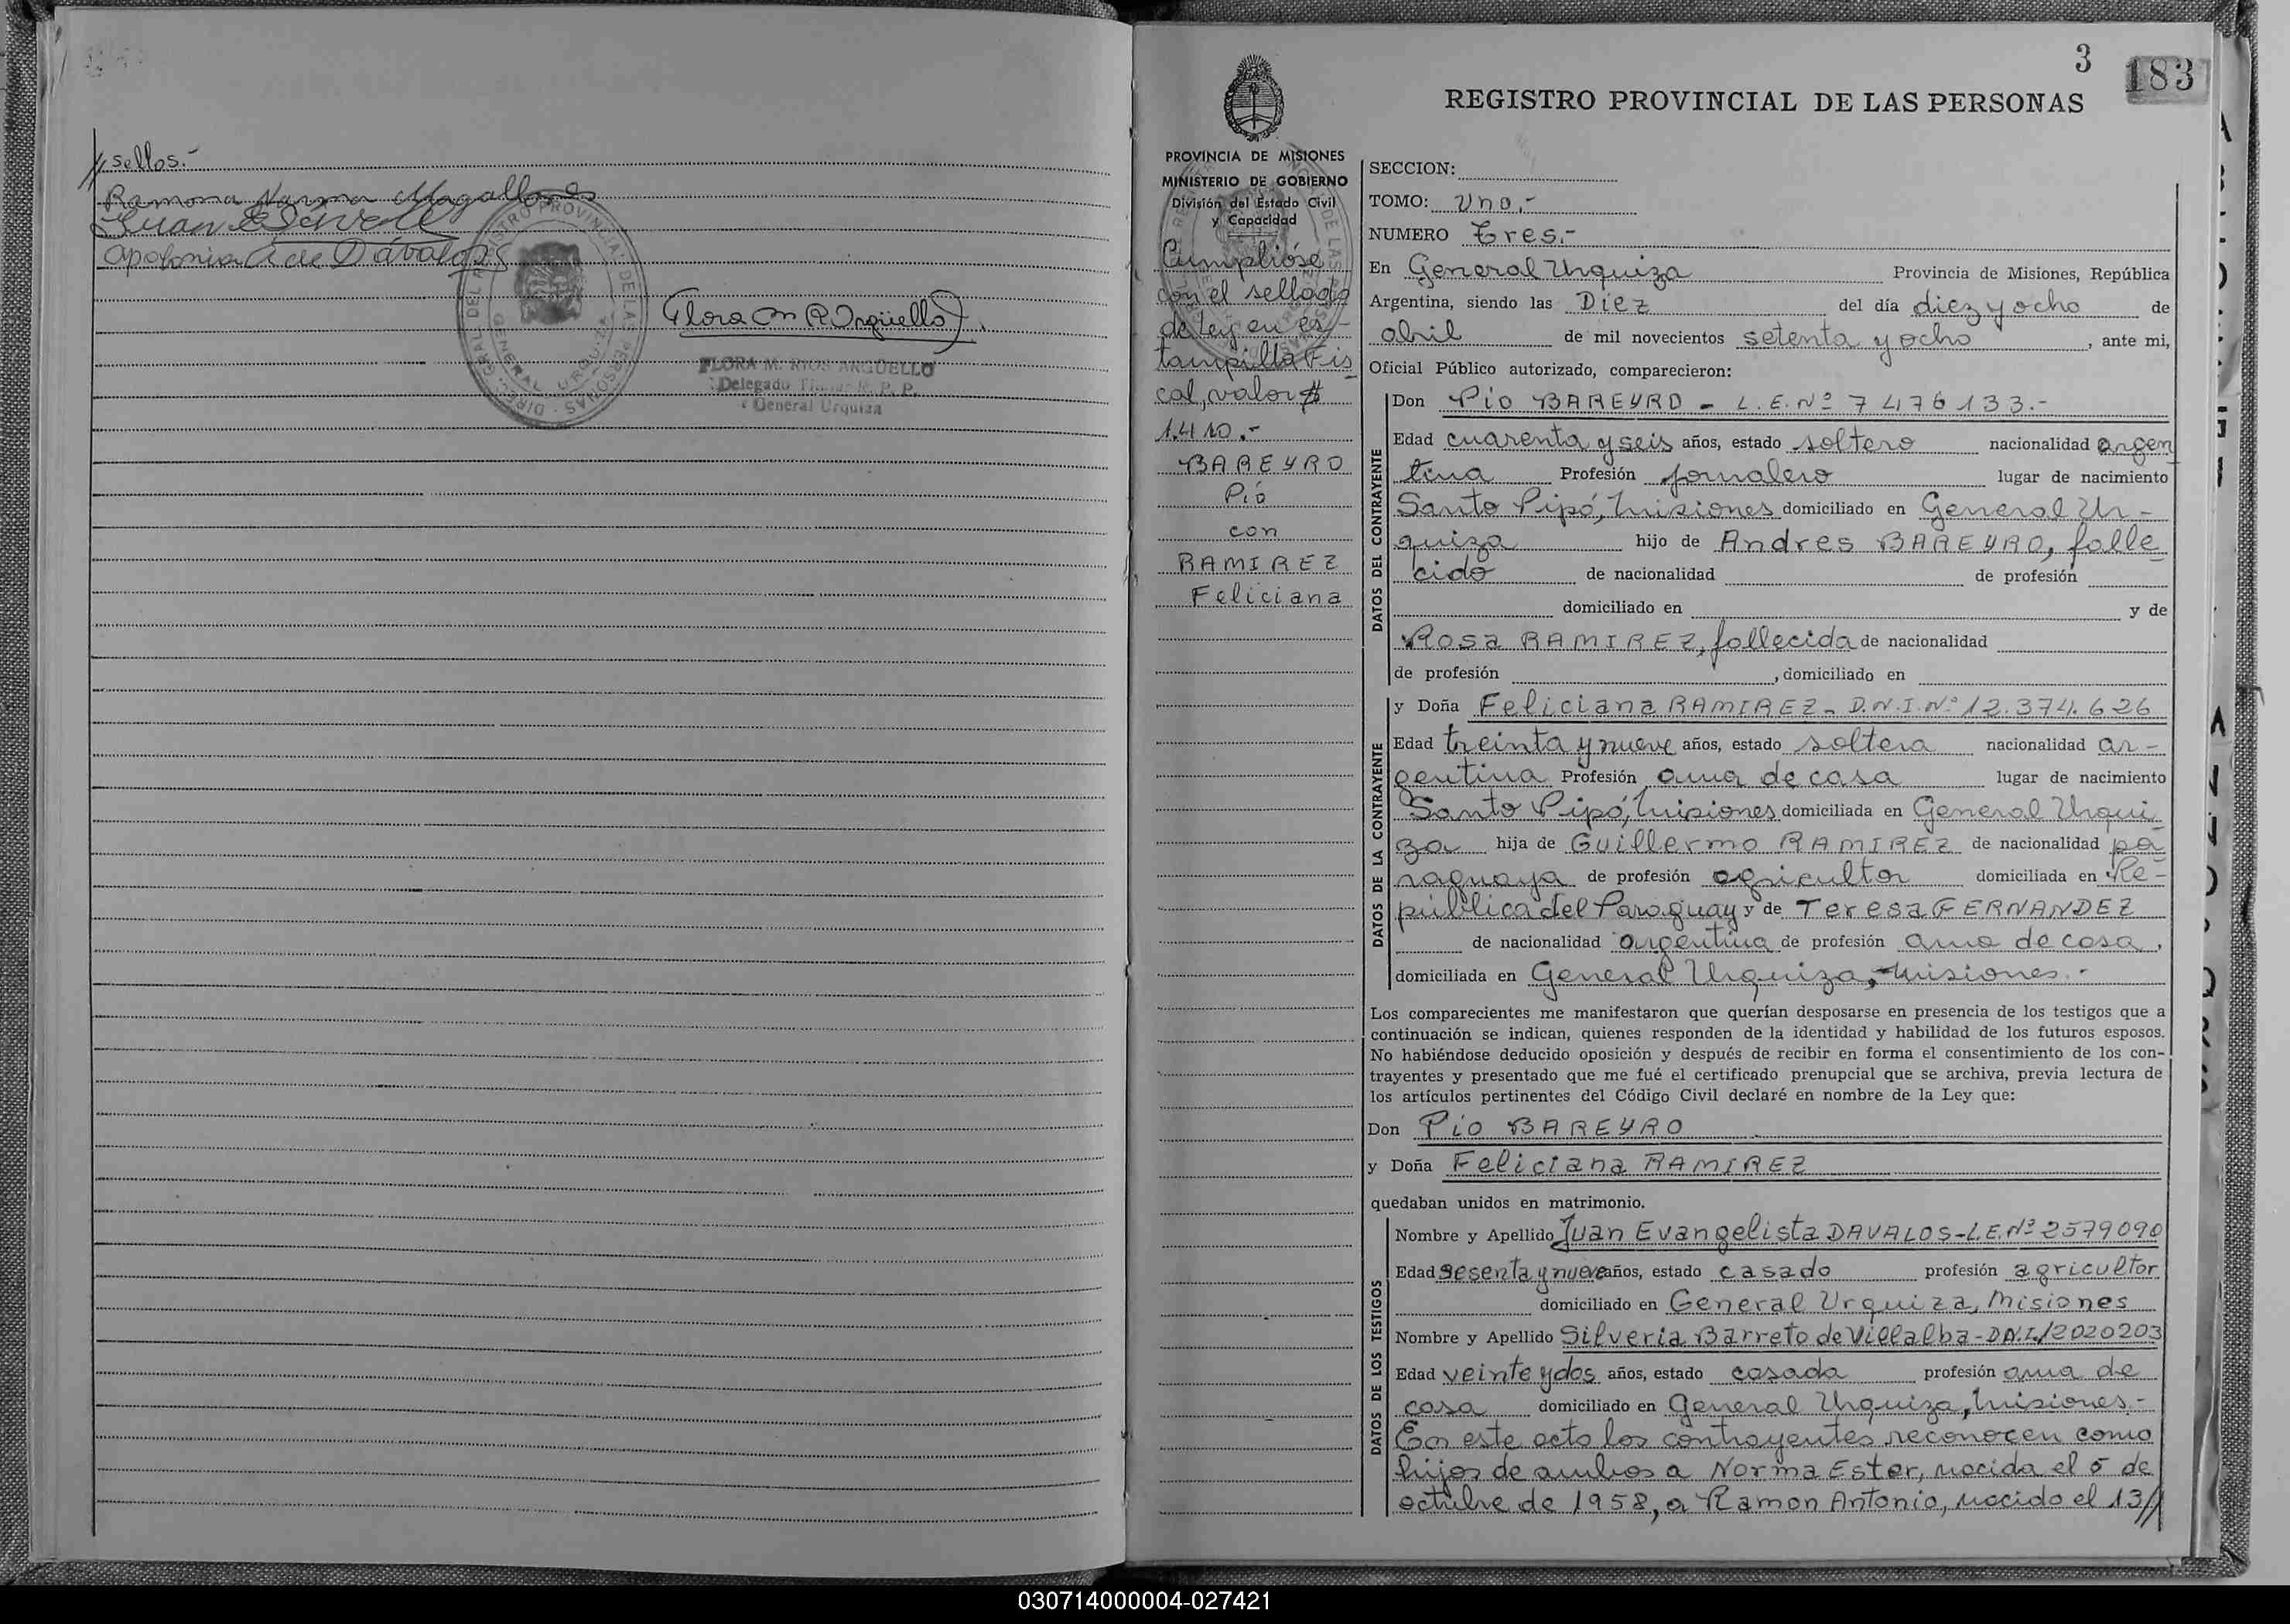 // sellos.-
Ramona Norma Magallanes
Juan
Apolonia A de Dávalos
Flora M R Argüello
FLORA M. RIOS ARGÜELLO
Delegado Titular R. P. P.
General Urquiza
3
183
REGISTRO PROVINCIAL DE LAS PERSONAS
PROVINCIA DE MISIONES
MINISTERIO DE GOBIERNO
División del Estado Civil
y Capacidad
Cumplióse
con el sellado
de Ley en es-
tampilla Fis
cal, valor $
1.410.-
BAREYRO
Pió
con
RAMIREZ
Feliciana
SECCION:
TOMO: Uno.-
NUMERO Tres.-
En General Urquiza Provincia de Misiones, República
Argentina, siendo las Diez del día diez y ocho de
abril de mil novecientos setenta y ocho, ante mi,
Oficial Público autorizado, comparecieron:
DATOS DEL CONTRAYENTE
Don Pío BAREYRO - L.E. Nº 7476133.-
Edad cuarenta y seis años, estado soltero nacionalidad argen
tina Profesión jornalero lugar de nacimiento
Santo Pipó, Misiones domiciliado en General Ur-
quiza hijo de Andres BAREYRO, falle
cido de nacionalidad de profesión
domiciliado en y de
Rosa RAMIREZ, fallecida de nacionalidad
de profesión , domiciliado en
DATOS DE LA CONTRAYENTE
y Doña Feliciana RAMIREZ - D.N.I. Nº 12.374.626
Edad treinta y nueve años, estado soltera nacionalidad ar-
gentina Profesión ama de casa lugar de nacimiento
Santo Pipó, Misiones domiciliada en General Urqui
za hija de Guillermo RAMIREZ de nacionalidad pa-
raguaya de profesión agricultor domiciliada en Re-
pública del Paraguay y de Teresa FERNANDEZ
de nacionalidad argentina de profesión ama de casa,
domiciliada en General Urquiza, Misiones.-
Los comparecientes me manifestaron que querían desposarse en presencia de los testigos que a
continuación se indican, quienes responden de la identidad y habilidad de los futuros esposos.
No habiéndose deducido oposición y después de recibir en forma el consentimiento de los con-
trayentes y presentado que me fué el certificado prenupcial que se archiva, previa lectura de
los artículos pertinentes del Código Civil declaré en nombre de la Ley que:
Don Pío BAREYRO
y Doña Feliciana RAMIREZ
quedaban unidos en matrimonio.
DATOS DE LOS TESTIGOS
Nombre y Apellido Juan Evangelista DAVALOS - L.E. Nº 2579090
Edad sesenta y nueve años, estado casado profesión agricultor
domiciliado en General Urquiza, Misiones
Nombre y Apellido Silveria Barreto de Villalba - D.N.I. 12020203
Edad veinte y dos años, estado casada profesión ama de
casa domiciliado en General Urquiza, Misiones.-
En este acto los contrayentes reconocen como
hijos de ambos a Norma Ester, nacida el 5 de
octubre de 1958, a Ramon Antonio, nacido el 13//
030714000004-027421